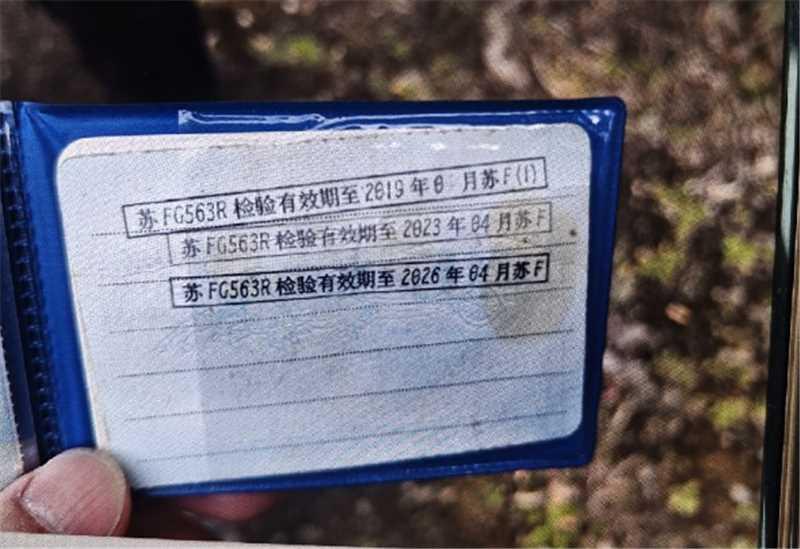 苏FG563R检验有效期至2019年0 月苏F(1)
苏FG563R检验有效期至2023年04月苏F
苏FG563R检验有效期至2026年04月苏F